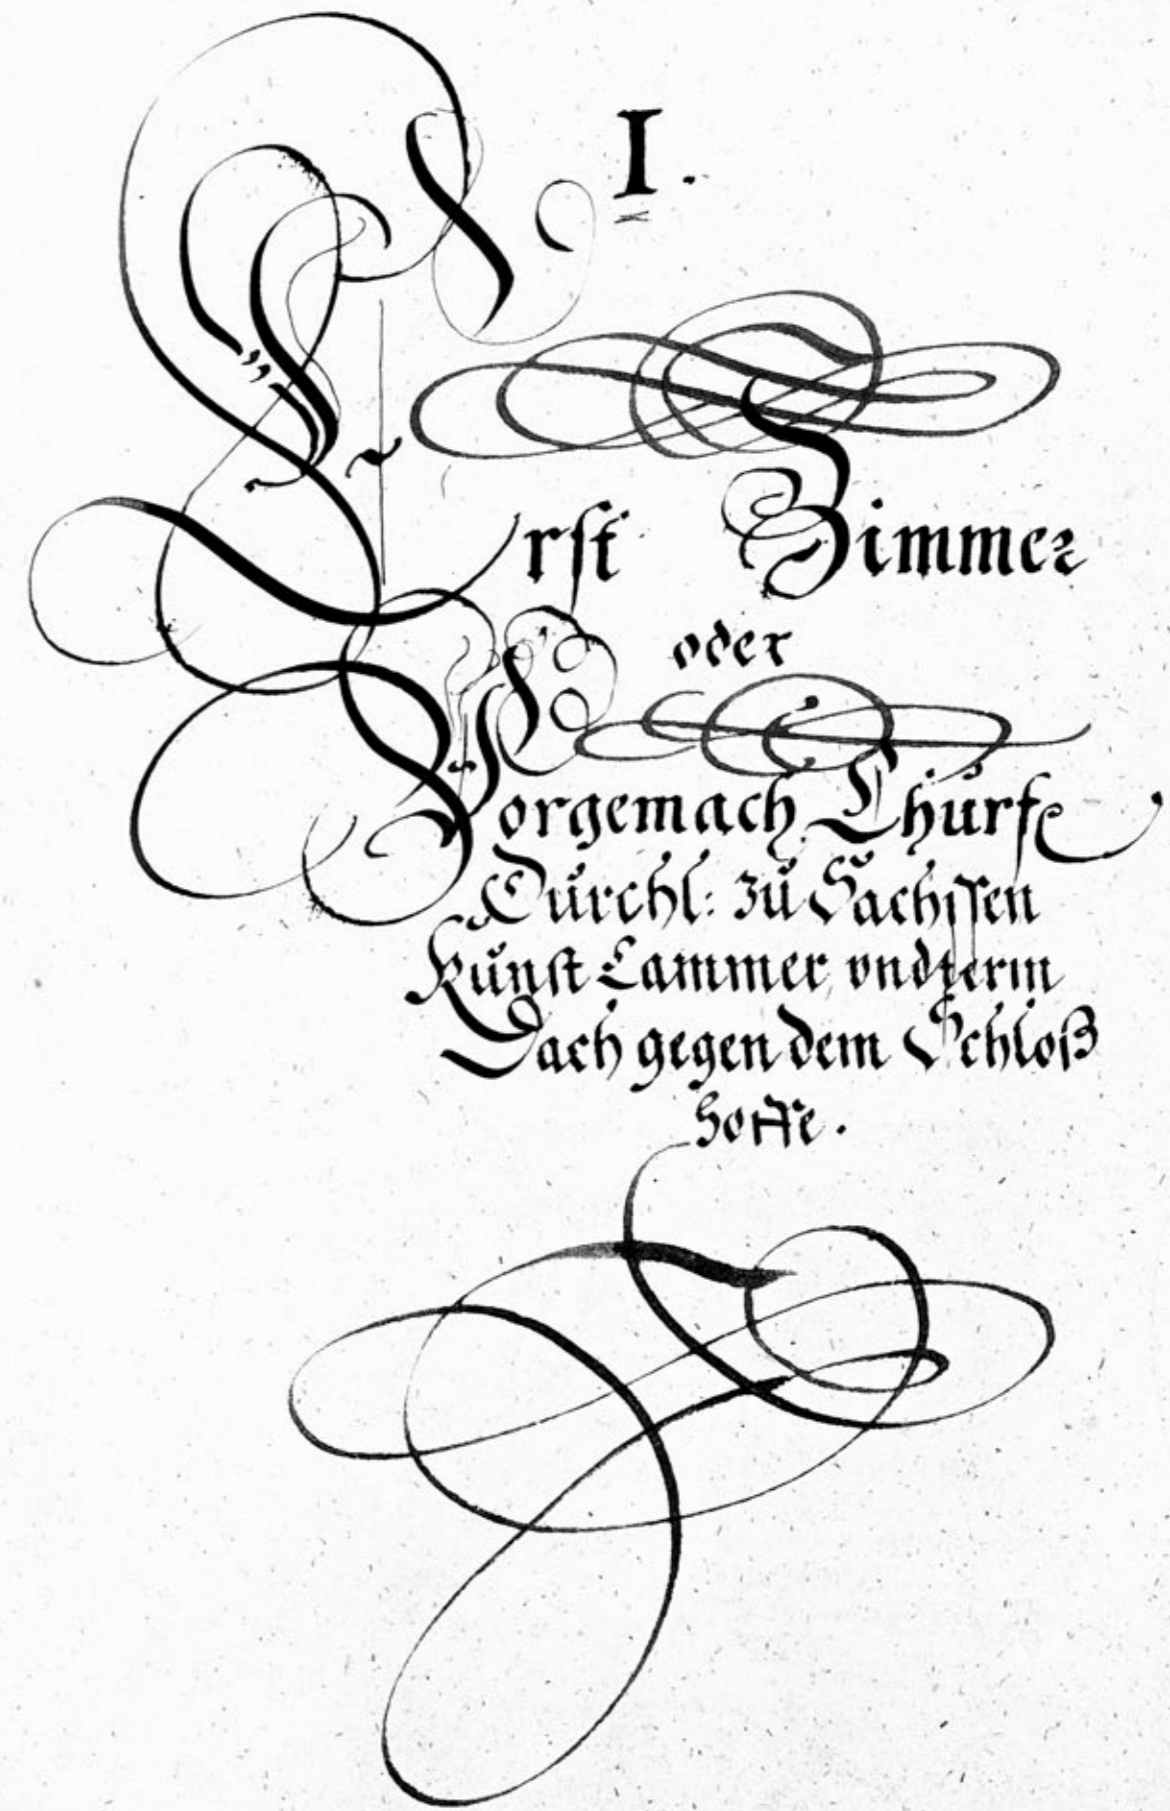 I.
Erst Zimmer
oder
Vorgemach Churf.
Durchl: zu Sachssen
Kunst Cammer vndterm
Dach gegen dem Schloß
hoffe.